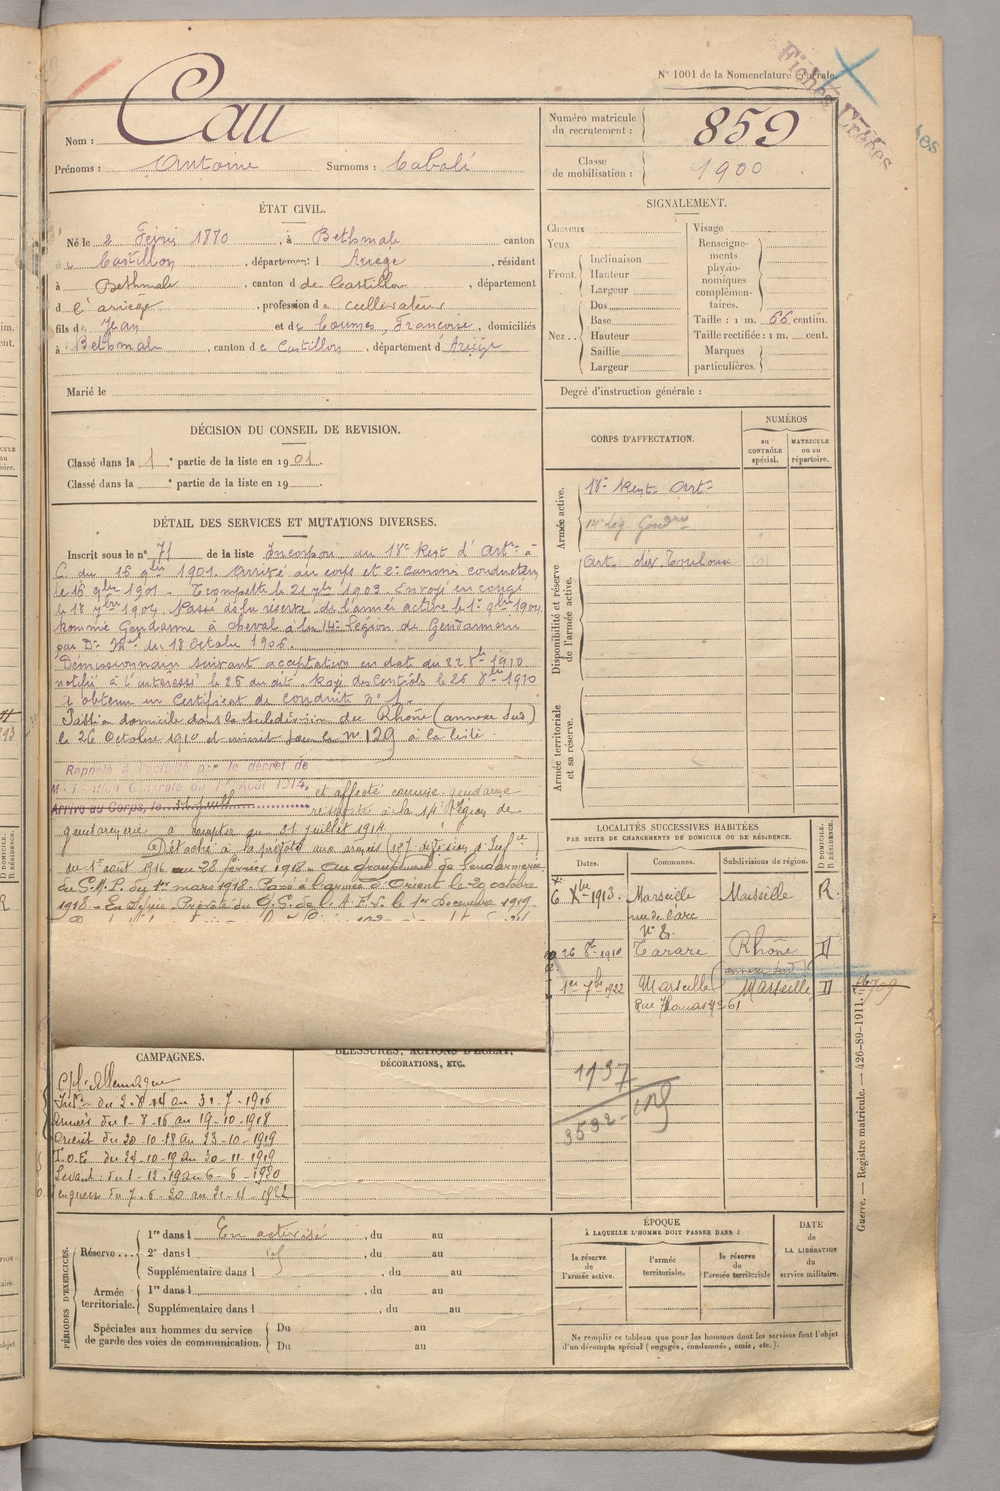 N° 1001 de la Nomenclature générale.
Fiches Créées
Nom : Cau
Prénoms : Antoine Surnoms : Cabalé
Numéro matricule du recrutement : 859
Classe de mobilisation : 1900
ÉTAT CIVIL.
Né le 2 Février 1880, à Bethmale canton
de Castillon, département d Ariège, résidant
à Bethmale, canton d de Castillon, département
d l'ariège, profession de cultivateur
fils de Jean et de Coumes, Françoise, domiciliés
à Bethmale, canton de Castillon, département d Ariège
Marié le
SIGNALEMENT.
Cheveux
Yeux
Front. Inclinaison
Hauteur
Largeur
Nez.. Dos
Base
Hauteur
Saillie
Largeur
Visage
Renseignements physionomiques complémentaires.
Taille : 1 m. 66 centim.
Taille rectifiée : 1 m. cent.
Marques particulières.
Degré d'instruction générale :
DÉCISION DU CONSEIL DE REVISION.
Classé dans la 1e partie de la liste en 1901.
Classé dans la e partie de la liste en 19
CORPS D'AFFECTATION.
NUMÉROS
au CONTRÔLE spécial.
MATRICULE ou au répertoire.
Armée active.
18e Régt Artie
14e Lég Gendrie
Disponibilité et réserve de l'armée active.
Art. dir. Toulouse
Armée territoriale et sa réserve.
DÉTAIL DES SERVICES ET MUTATIONS DIVERSES.
Inscrit sous le n° 71 de la liste Incorporé au 18e Régt d'Artie à
C. du 16 9bre 1901. Arrivé au corps et 2e canonnier conducteur
le 16 9bre 1901. Trompette le 21 7bre 1903. Envoyé en congé
le 18 7bre 1904. Passé dans la réserve de l'armée active le 1er 9bre 1904
Nommé Gendarme à cheval à la 14e Légion de Gendarmerie
par Don Mlle du 18 Octobre 1906.
Démissionnaire suivant acceptation en date du 22 8bre 1910
notifié à l'intéressé le 25 au dit. Rayé des Contrôles le 26 8bre 1910
a obtenu un Certificat de conduite n° 1.
Passé en domicile dans la subdivision du Rhône (annexe sud)
le 26 Octobre 1910 et inscrit sous le n° 129 à la liste
Rappelé à l'activité par le décret de
Mobilisation Générale du 1er Août 1914, et affecté comme gendarme
Arrivé au Corps, le réserviste à la 14e Légion de
gendarmerie à compter du 21 juillet 1914
Détaché à la prévôté aux armées (127 division d'Infie)
du 1er août 1916 au 28 février 1918. Au groupement de Gendarmerie
du G.M.P. du 1er mars 1918. Passé à l'armée d'Orient le 20 octobre
1918. En Syrie. Prévôté du Q.G. de l'A.F.L. le 1er Decembre 1919.
LOCALITÉS SUCCESSIVES HABITÉES
PAR SUITE DE CHANGEMENTS DE DOMICILE OU DE RÉSIDENCE.
Dates. Communes. Subdivisions de région. D DOMICILE. R RÉSIDENCE.
6 Xbre 1913 Marseille Marseille R.
rue de l'arc
n° 8.
26 8bre 1910 Tarare Rhône D
(annexe sud)
1er 7bre 1922 Marseille Marseille D
Rue Thomas 61
1137
3532
CAMPAGNES.
C/ l'Allemagne
Intre du 2-8-14 au 31-7-1916
Armées du 1-8-16 au 19-10-1918
Orient du 20-10-18 au 23-10-1919
T.O.E du 24-10-19 au 30-11-1919
Levant : du 1-12-19 au 6-6-1920
en guerre du 7-6-20 au 21-4-1922
BLESSURES, ACTIONS D'ÉCLAT,
DÉCORATIONS, ETC.
PÉRIODES D'EXERCICES.
Réserve... 1re dans l En activité, du au
2e dans l, du au
Supplémentaire dans l, du au
Armée territoriale. 1re dans l, du au
Supplémentaire dans l, du au
Spéciales aux hommes du service de garde des voies de communication. Du au
Du au
ÉPOQUE
À LAQUELLE L'HOMME DOIT PASSER DANS :
la réserve de l'armée active.
l'armée territoriale.
la réserve de l'armée territoriale
DATE de LA LIBÉRATION du service militaire.
Ne remplir ce tableau que pour les hommes dont les services font l'objet
d'un décompte spécial (engagés, condamnés, omis, etc.).
Guerre. — Registre matricule. — 426-89-1911.